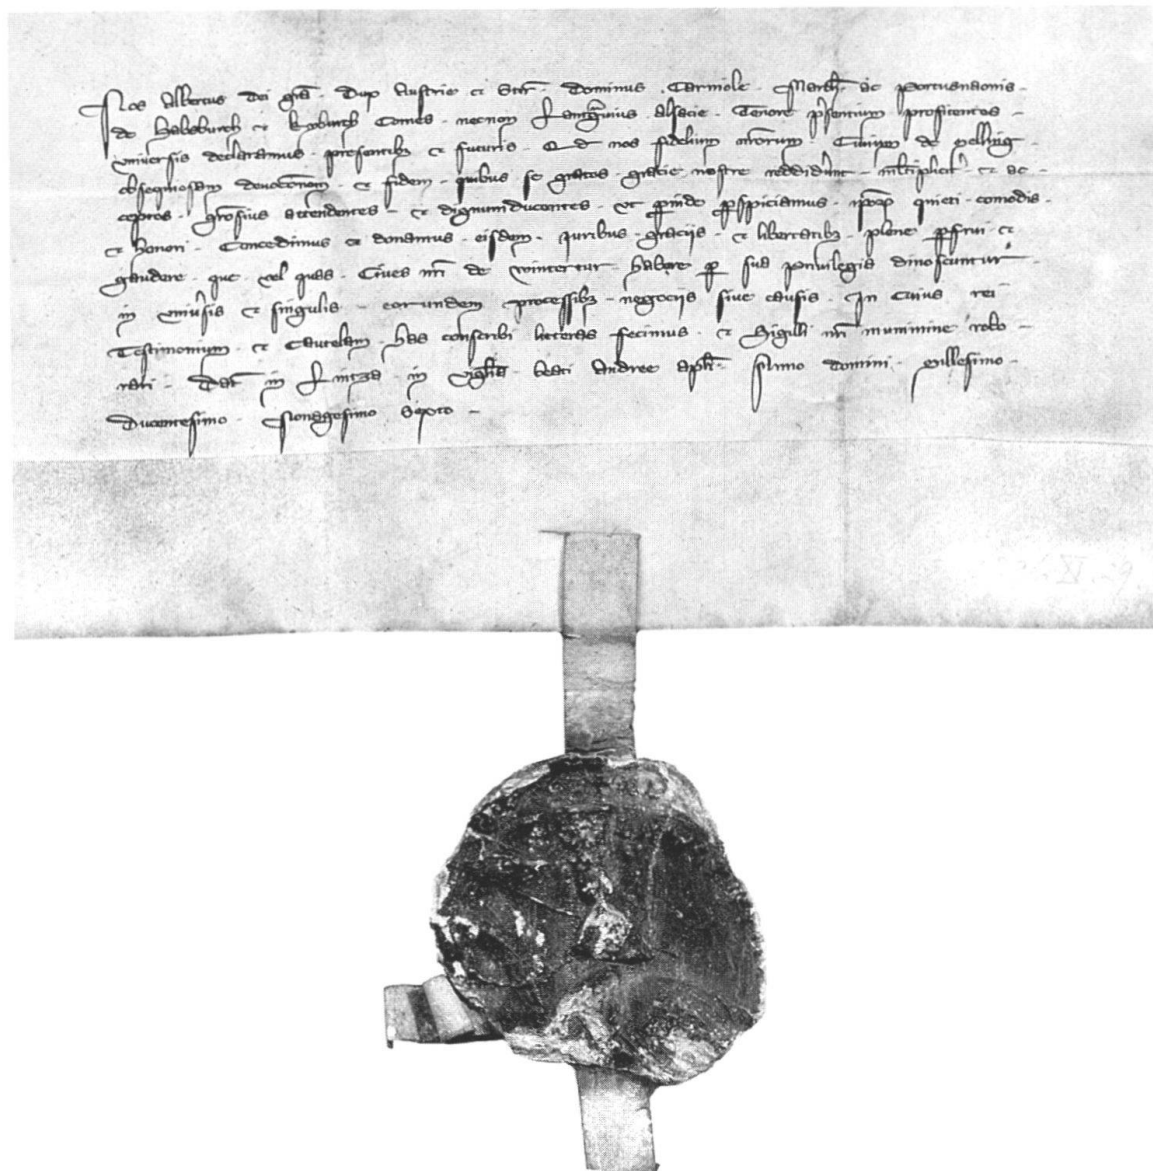 Nos Albertus dei gr̄a. Dux Austrie et Stir̄. Dominus. Carniole. March̄. ac portusnaonis.
de Habsburch et Kyburch Comes. necnon Lantg̃uius Alsacie. Tenore pr̄sentium profitentes.
vniuersis declaramus. presentib; et futuris. Q d nos fidelium nr̄orum. Ciuium de
obsequiosam deuocōnem. et fidem. quibus se gratos. gracie nostre reddider̄unt. mltiplicit̄. et ac-
ceptos. gr̄osius attendentes. et dignum ducentes. vt ꝑinde ꝑspiciamus. ip̄oꝝ quieti. comodis.
et honori. Concedimus et donamus. eisdem. iuribus. gracijs. et libertatib;. plene ꝑfrui. et
gaudere. que. vel quas. Ciues nr̄i de Wintertur. habere ꝑ sua priuilegia dinoscuntur.
in vniūsis et singulis. eorundem processib;. negocijs siue causis. In Cuius rei
Testimonium. et Cautelam. has conscribi litteras fecimus. et Sigilli nr̄i munimine robo-
rari. Dat̄. in Lintza. in vigl̄ia. beati Andree apl̄i. Anno domini. Millesimo.
Ducentesimo. Nonagesimo Sexto.
IX.